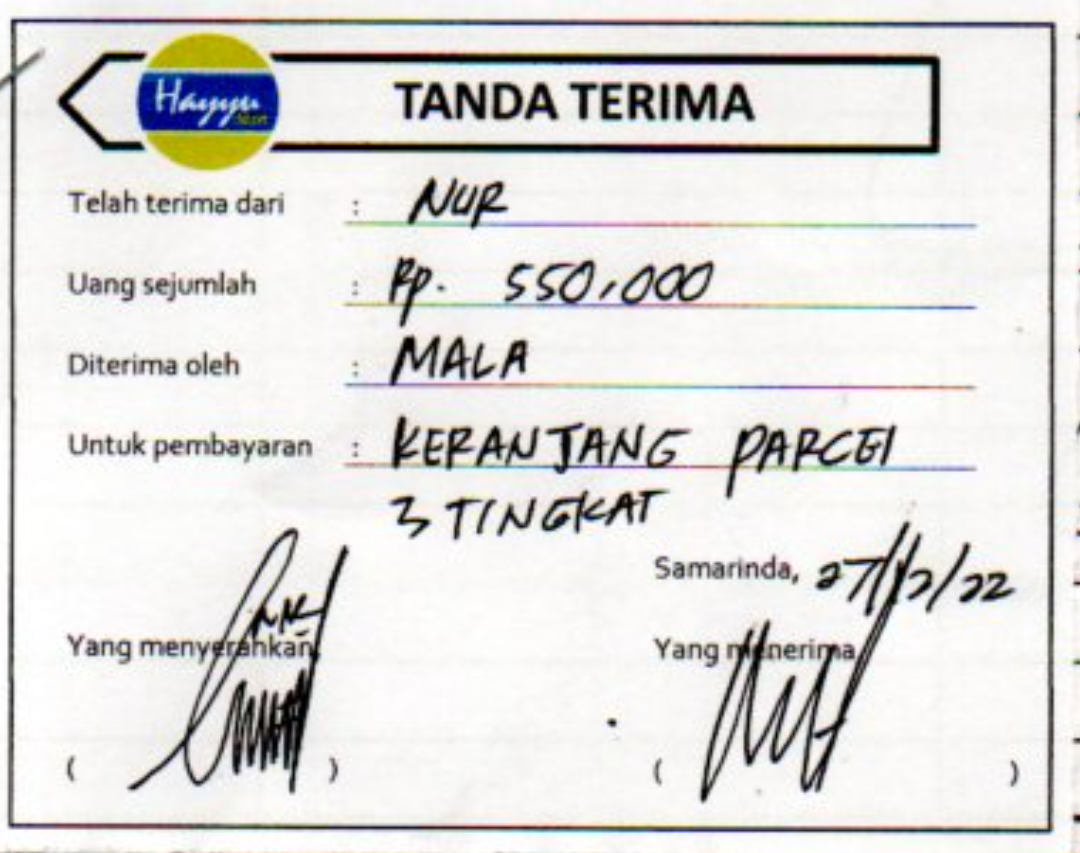 Hayyu
TANDA TERIMA
Telah terima dari : NUR
Uang sejumlah : Rp. 550.000
Diterima oleh : MALA
Untuk pembayaran : KERANJANG PARCEl
3 TINGKAT
Samarinda, 27/12/22
Yang menyerahkan,
Yang menerima,
( )
( )